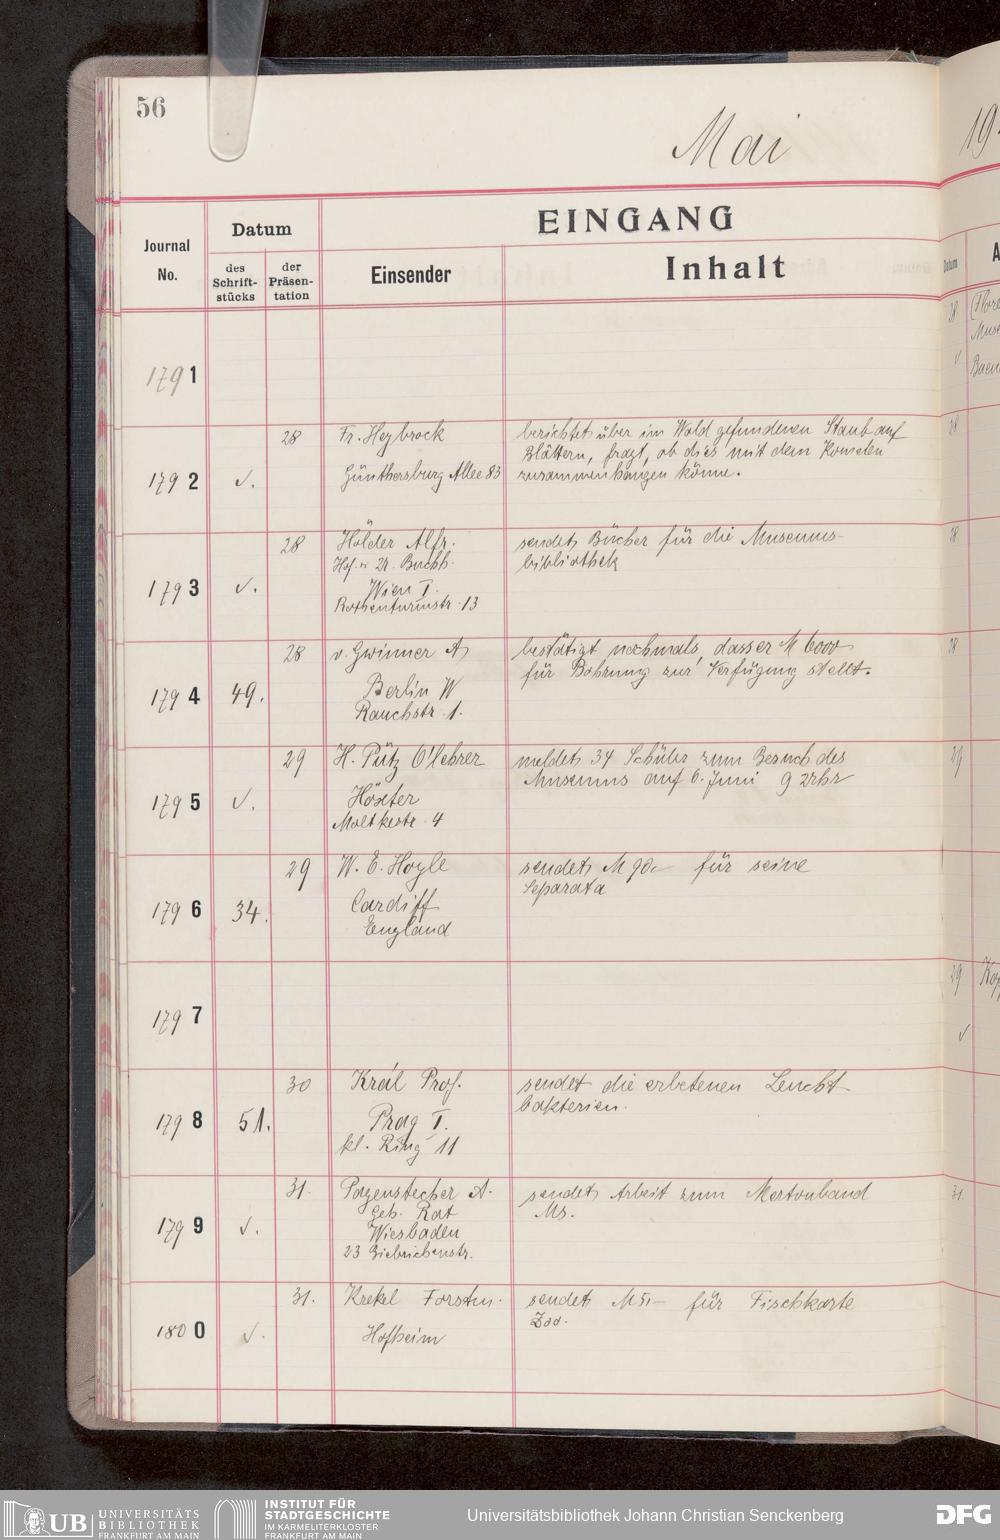 56
Mai
19
EINGANG
Journal No.
Datum
des Schrift-stücks
der Präsen-tation
Einsender
Inhalt
Datum
A
1791
1792
√.
28
Fr. Heybrock
Günthersburg Allee 83
berichtet über im Wald gefundenen Staub auf
Blättern, fragt, ob dies mit dem Kometen
zusammenhangen könne.
1793
√.
28
Hölder Alfr.
Hof. u. U. Buchh.
Wien I.
Rothenturmstr. 13
sendet Bücher für die Museums-
bibliothek
1794
49.
28
v. Gwinner A
Berlin W
Rauchstr. 1.
bestätigt nochmals, dass er M 6000
für Bohrung zur Verfügung stellt.
1795
√.
29
H. Pütz O'lehrer
Höxter
Moltkestr. 4
meldet 34 Schüler zum Besuch des
Museums auf 6. Juni 9 Uhr
1796
34.
29
W. E. Hoyle
Cardiff
England
sendet M 90.- für seine
Separata
1797
1798
51.
30
Král Prof.
Prag I.
kl. Ring 11
sendet die erbetenen Leucht-
bakterien.
1799
√.
31.
Pagenstecher A.
Geh. Rat
Wiesbaden
23 Biebricherstr.
sendet Arbeit zum Mertonband
Ms.
1800
√.
31.
Krekel Forstm.
Hofheim
sendet M 51- für Fischkarte
Zoo.
28
28
28
28
29
29
√
31.
UB
UNIVERSITÄTS
BIBLIOTHEK
FRANKFURT AM MAIN
INSTITUT FÜR
STADTGESCHICHTE
IM KARMELITERKLOSTER
FRANKFURT AM MAIN
Universitätsbibliothek Johann Christian Senckenberg
DFG